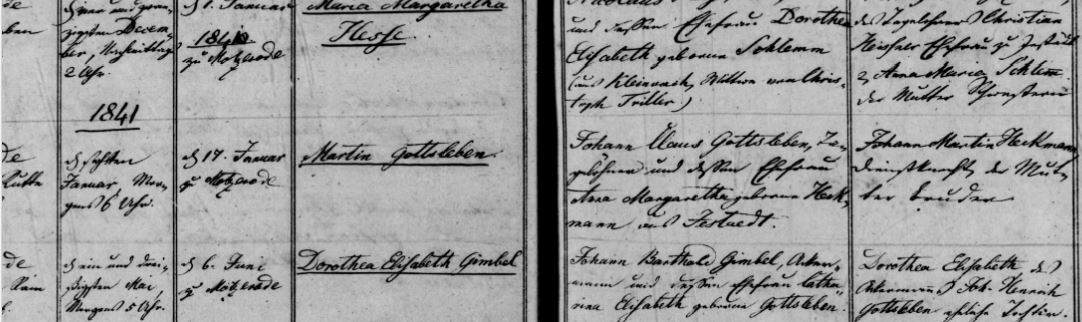 de
ben
d. vier und zwan-
zigsten Decem-
ber, Nachmittag
2 Uhr.
d. 1. Januar
1841
zu Motzerode
Maria Margaretha
Hesse.
Nicolaus
und dessen Ehefrau Dorothea
Elisabeth geborene Schlemm
(aus Kleinvach, Wittwe von Chris-
toph Triller)
des Tagelöhners Christian
Ehefrau zu Jestädt
2, Anna Maria Schlem
der Mutter Schwestern
1841
de
d. sechsten
Januar, Mor-
gens 6 Uhr.
d. 17. Januar
zu Motzerode
Martin Gottsleben.
Johann Claus Gottsleben, Ta-
gelöhner und dessen Ehefrau
Anna Margaretha geborene Heck-
mann aus Jestaedt.
Johann Martin Heckmann
Dienstknecht, der Mut-
ter Bruder
de
d. ein und drei-
ßigsten Mai,
Morgens 5 Uhr.
d. 6. Juni
zu Motzerode
Dorothea Elisabeth Gimbel
Johann Barthold Gimbel, Acker-
mann und dessen Ehefrau Catha-
rina Elisabeth geborene Gottsleben.
Dorothea Elisabeth des
Ackermann Joh. Henrich
Gottsleben eheliche Tochter.